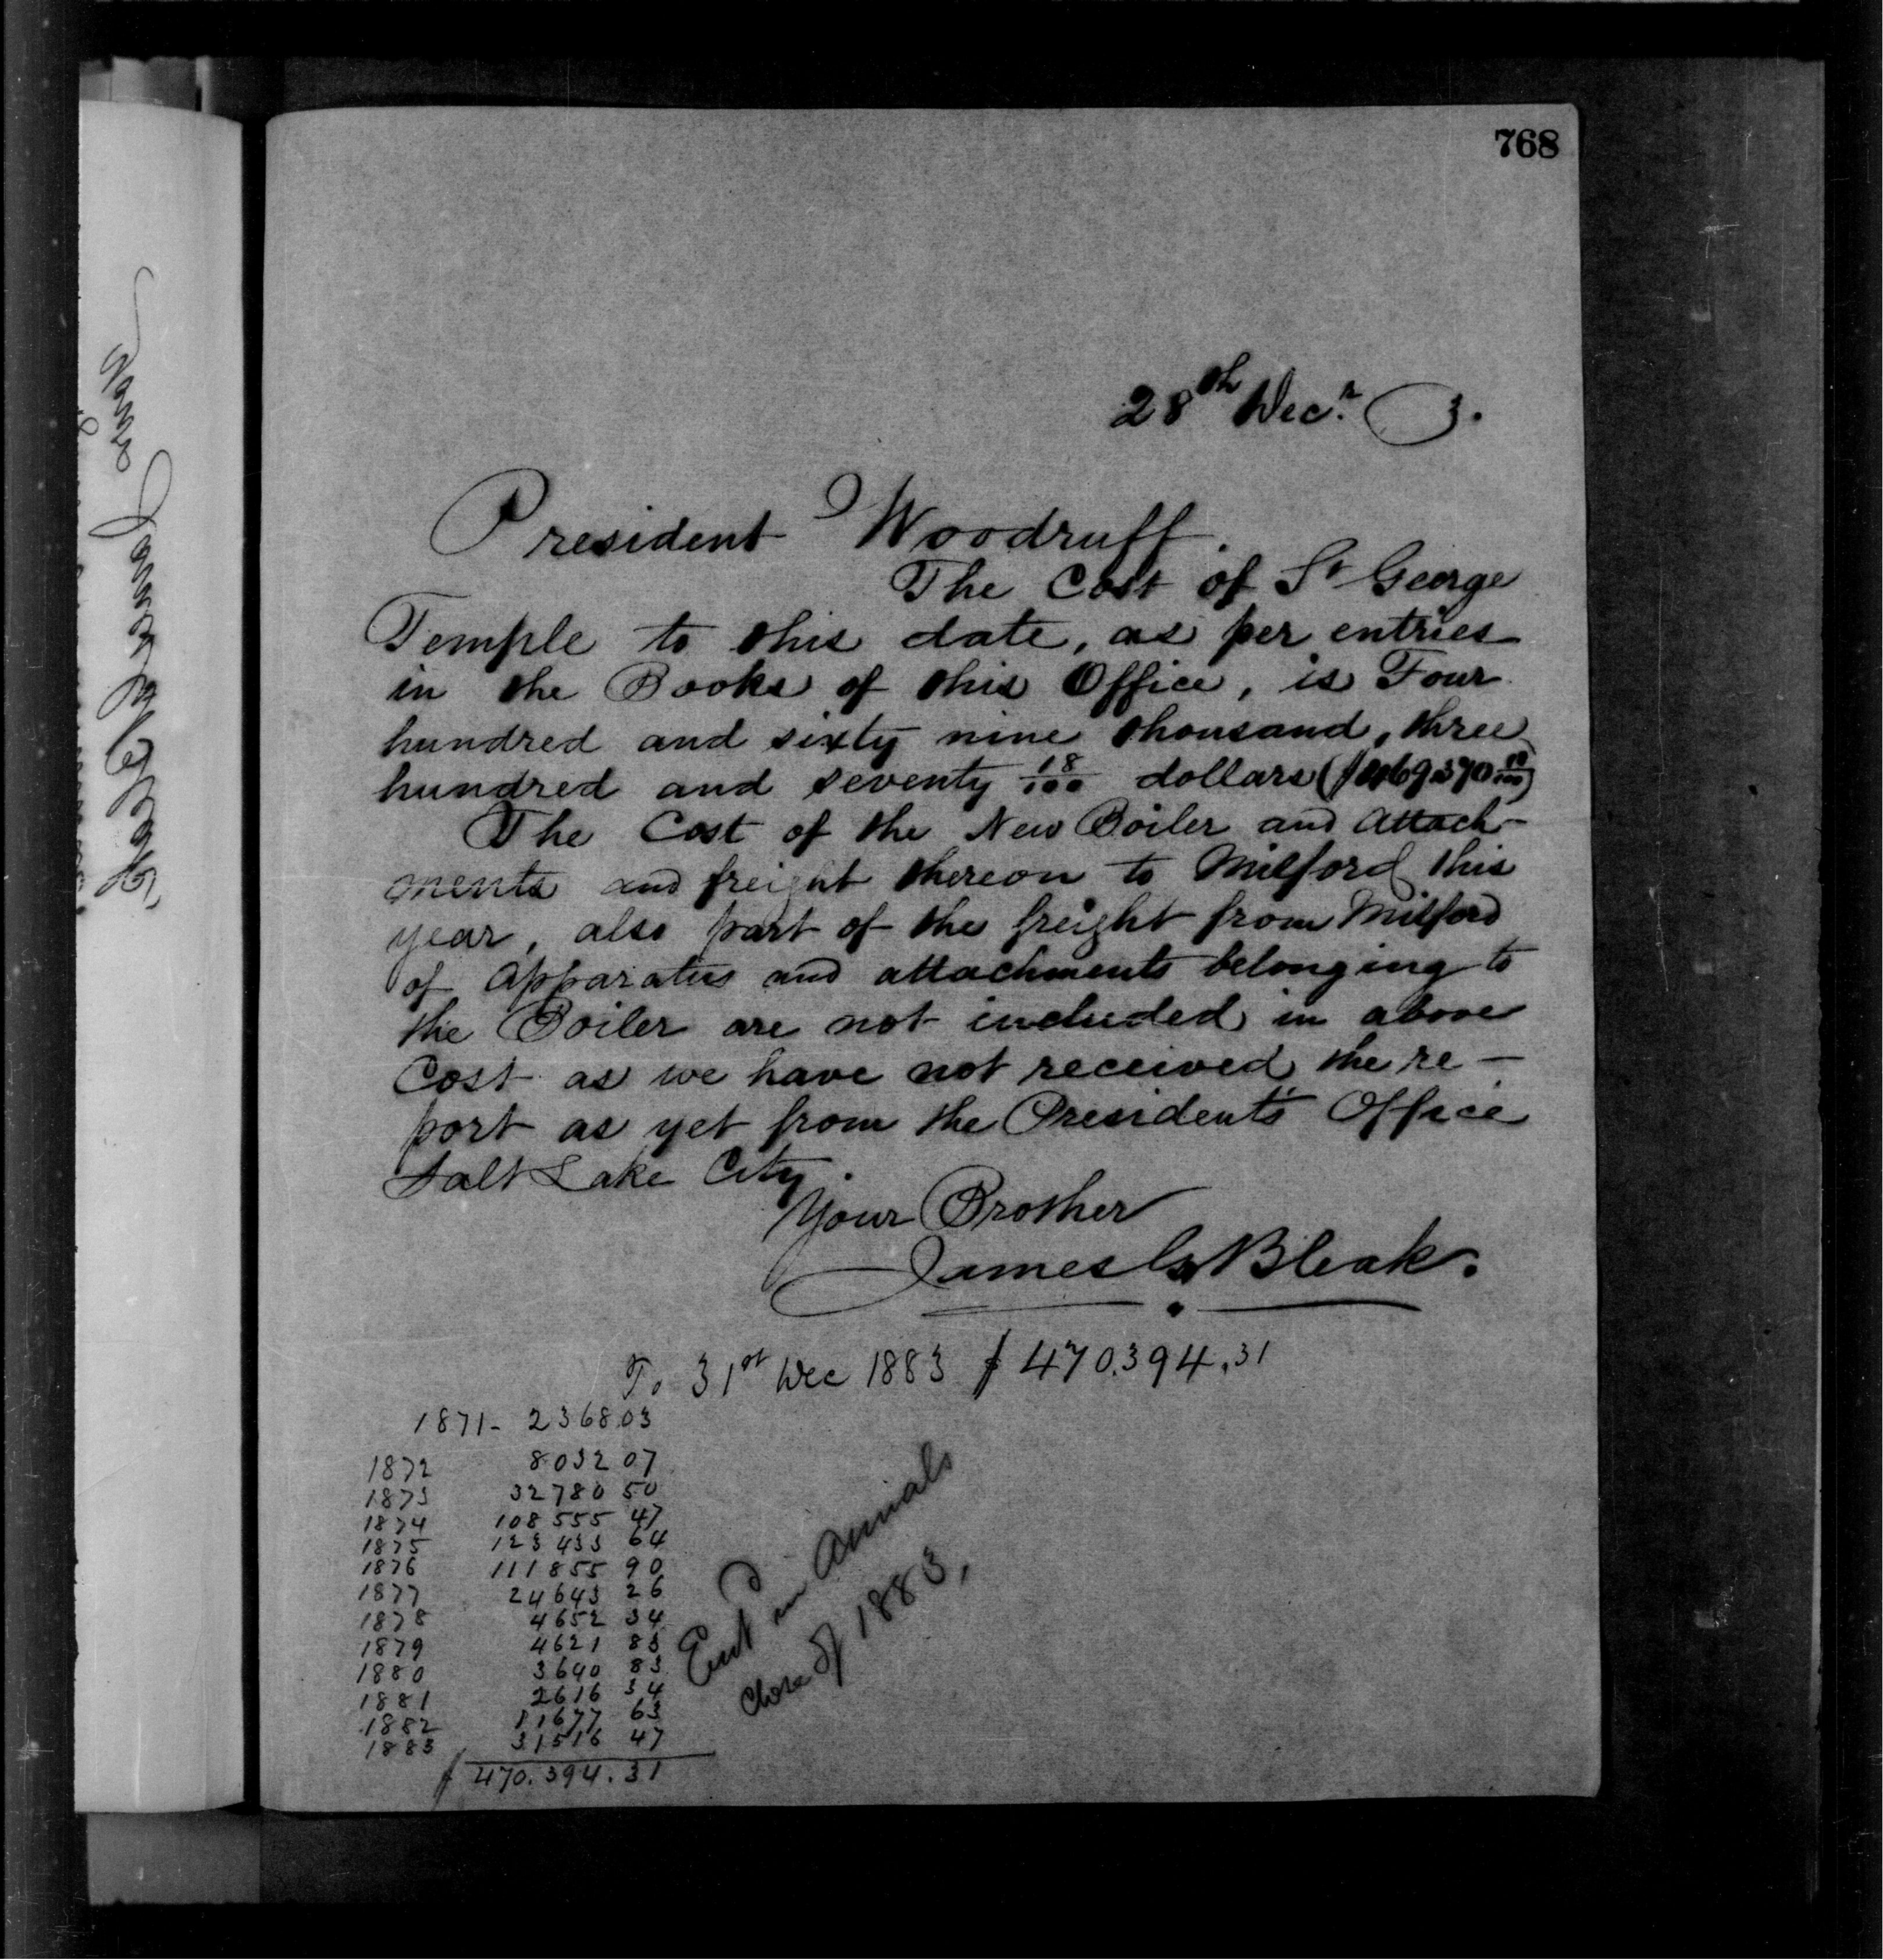 768
28th Decr. 3.
President Woodruff.
The Cost of St George
Temple to this date, as per entries
in the Books of this Office, is Four
hundred and sixty nine thousand, three
hundred and seventy 18/100 dollars ($469370 18/100)
The Cost of the New Boiler and Attach-
ments and freight thereon to Milford this
year, also part of the freight from Milford
of Apparatus and attachments belonging to
the Boiler are not included in above
Cost as we have not received the re-
port as yet from the Presidents Office
Salt Lake City.
Your Brother
James G. Bleak.
To 31st Dec 1883 $470.394.31
1871 - 2368.03
1872 8032 07
1873 32780 50
1874 108555 47
1875 123433 64
1876 111855 90
1877 24643 26
1878 4652 34
1879 4621 83
1880 3640 83
1881 2616 34
1882 11677 63
1883 31516 47
$470.394.31
Ent in Annals
close of 1883,
James G. Bleak